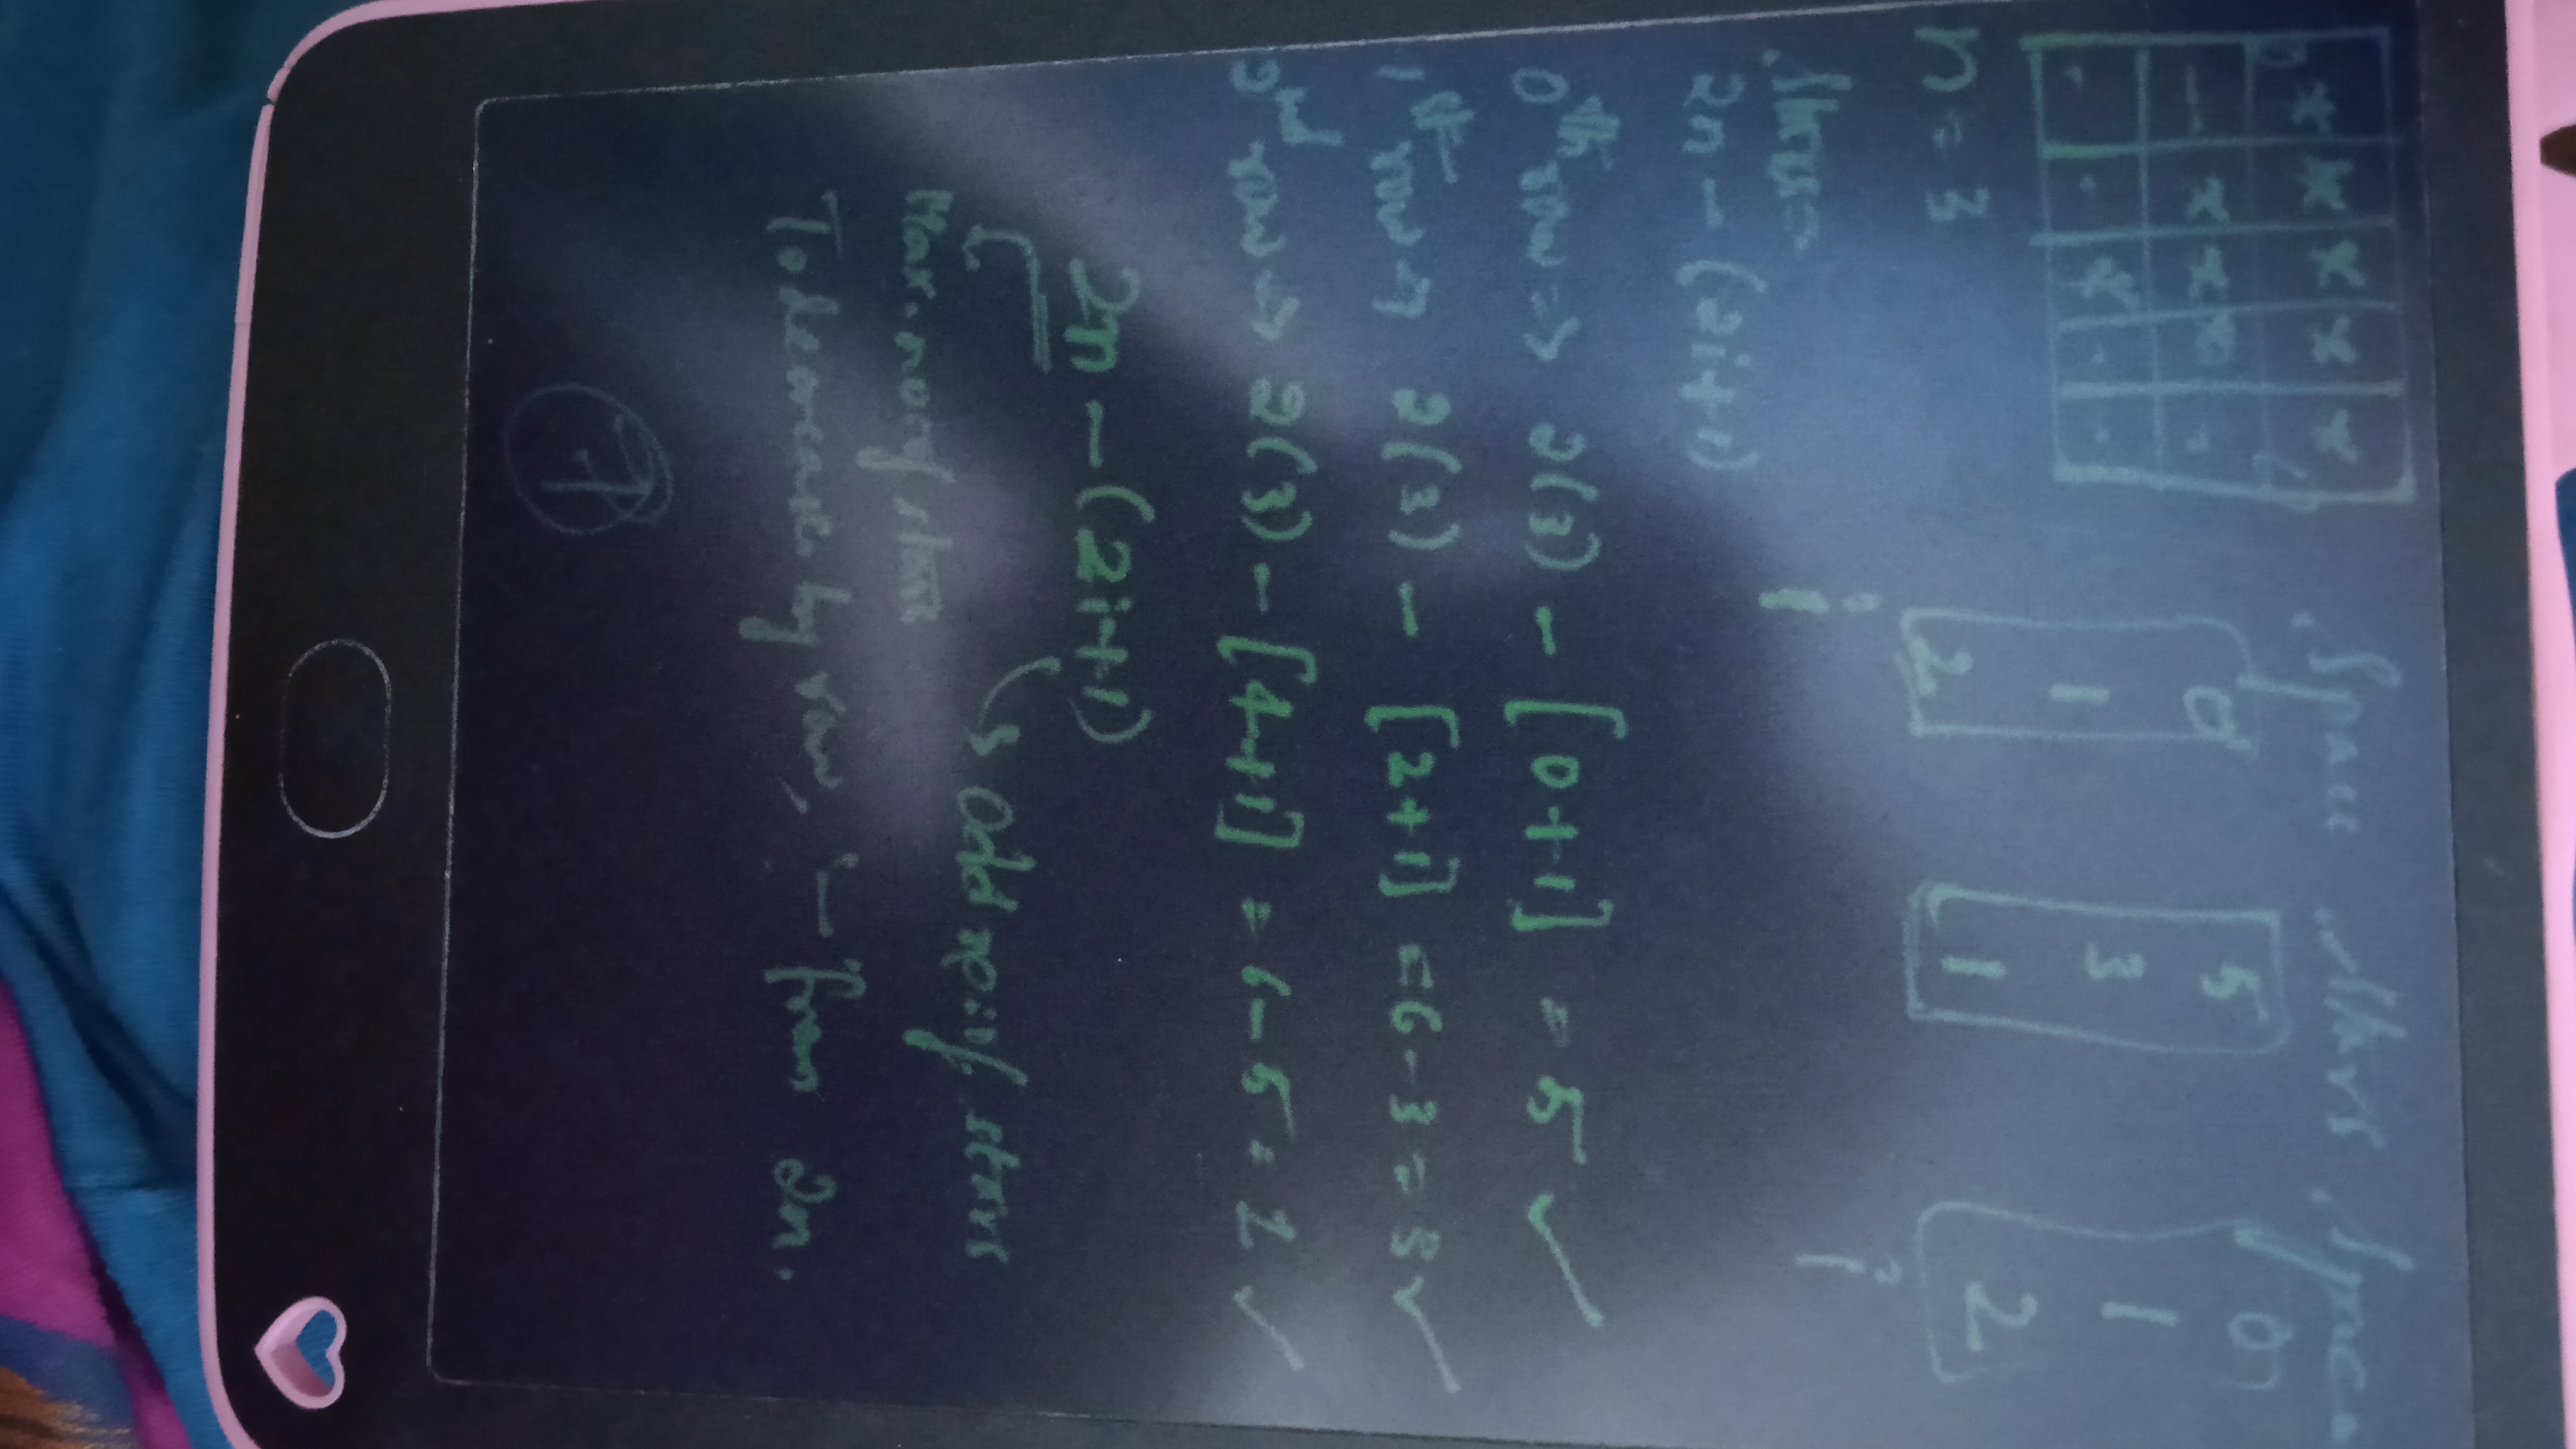 * * * * *
- * * * -
. . * . .
. Space . Stars . Space
0 5 0
1 3 1
2 1 2
i i
n = 3
Stars =
2n - (2i+1)
0th row => 2(3) - [0+1] = 5 ✓
1th row → 2(3) - [2+1] = 6-3 = 3 ✓
2nd row → 2(3) - [4+1] = 6-5 = 1 ✓
2n - (2i+1)
↳ Odd no. of stars
Max. no of stars
To decrease by row, - from 2n.
7